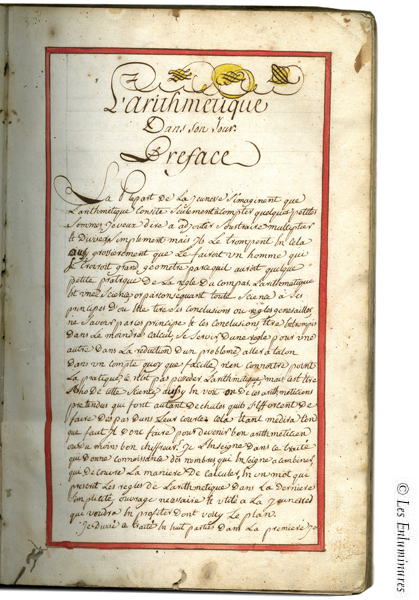 L'arithmetique
Dans son Jour.
Preface
La Plupart de La Jeunesse S'imaginent que
L'arithmetique consiste Seulement a compter quelques petites
Sommes, Je veux dire a adjouter Soustraire multiplier
& Diviser simplement mais ils Se trompent En cela
aussy grossierement que Le fairoit un homme qui
Se croiroit grand geometre parce quil auroit quelque
petite pratique de La regle du compas L'arithmetique
Est une Science or par consequant toute Science a Ses
principes d'ou Elle tire Ses conclusions ou regles generalles
ne Savoir pas ces principes & ces conclusions Estre
Dans Le moindre calcul, Se Servir D'une regle pour une
autre Dans La reduction d'un probleme, aller a taton
dans un compte quoy que facille, n'en connoitre point
La pratique, ce n'est pas posseder L'arithmetique, mais c'est Estre
de cette Science, aussy En voit on de ces arithmeticiens
pretendus qui font autant de chutes quils S'efforcent de
faire des pas dans Leur course cela Etant
que faut il donc faire pour devenir bon arithmeticien
ou du moins bon chiffreur, Je L'Enseigne dans ce traité
qui donne connoissance des nombres que Enseigne a combiner,
qui découvre La maniere De calculer, En un mot qui
prescrit Les regles de L'arithmetique dans La derniere
Simplicité, ouvrage necessaire & utile a La Jeunesse
qui voudra En profiter dont voicy Le plan.
Je divise ce traité En huit parties dans La premiere Je
© Les Enluminures